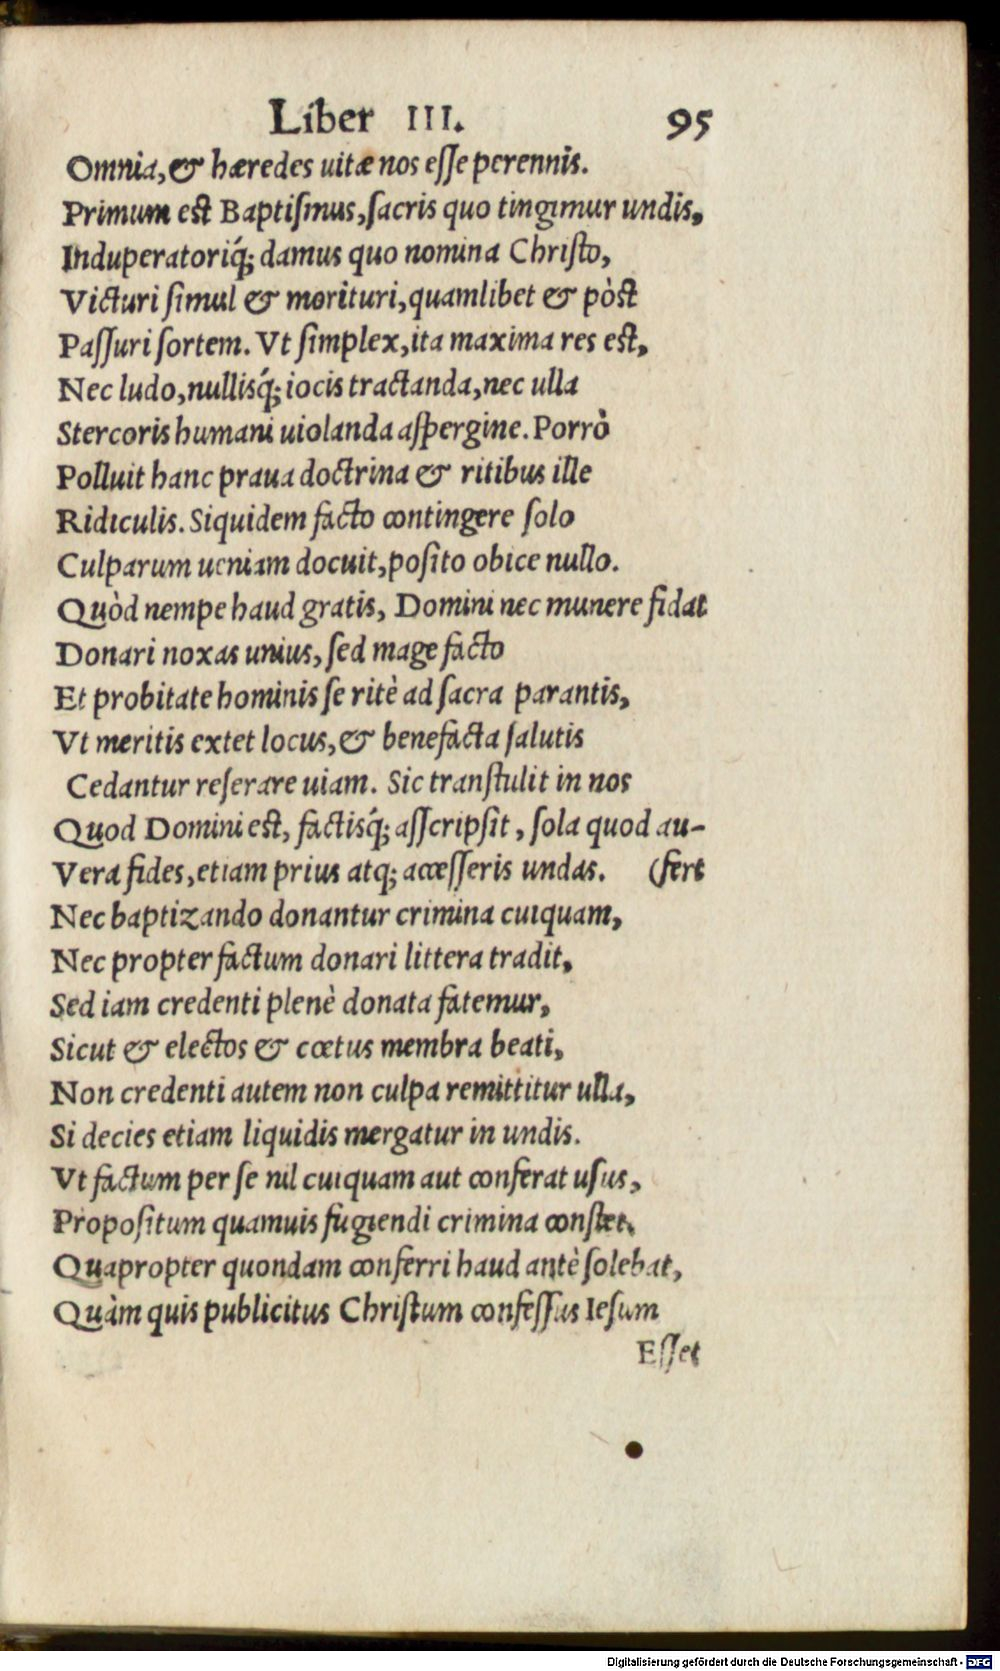 Liber III. 95
Omnia, & hæredes uitæ nos eſſe perennis.
Primum est Baptiſmus, ſacris quo tingimur undis,
Induperatoriq́; damus quo nomina Chriſto,
Victuri ſimul & morituri, quamlibet & pòst
Paſſuri ſortem. Vt ſimplex, ita maxima res est,
Nec ludo, nullisq́; iocis tractanda, nec ulla
Stercoris humani uiolanda aſpergine. Porrò
Polluit hanc praua doctrina & ritibus ille
Ridiculis. Siquidem facto contingere ſolo
Culparum ueniam docuit, poſito obice nullo.
Quòd nempe haud gratis, Domini nec munere fidat
Donari noxas unius, ſed mage facto
Et probitate hominis ſe ritè ad ſacra parantis,
Vt meritis extet locus, & benefacta ſalutis
Cedantur reſerare uiam. Sic tranſtulit in nos
Quod Domini est, factisq́; aſſcripſit, ſola quod au-
Vera fides, etiam prius atq; acceſſeris undas. (fert
Nec baptizando donantur crimina cuiquam,
Nec propter factum donari littera tradit,
Sed iam credenti plenè donata fatemur,
Sicut & electos & cœtus membra beati,
Non credenti autem non culpa remittitur ulla,
Si decies etiam liquidis mergatur in undis.
Vt factum per ſe nil cuiquam aut conferat uſus,
Propoſitum quamuis fugiendi crimina conſtet.
Quapropter quondam conferri haud antè ſolebat,
Quàm quis publicitus Chriſtum confeſſus Ieſum
Eſſet
Digitalisierung gefördert durch die Deutsche Forschungsgemeinschaft - DFG